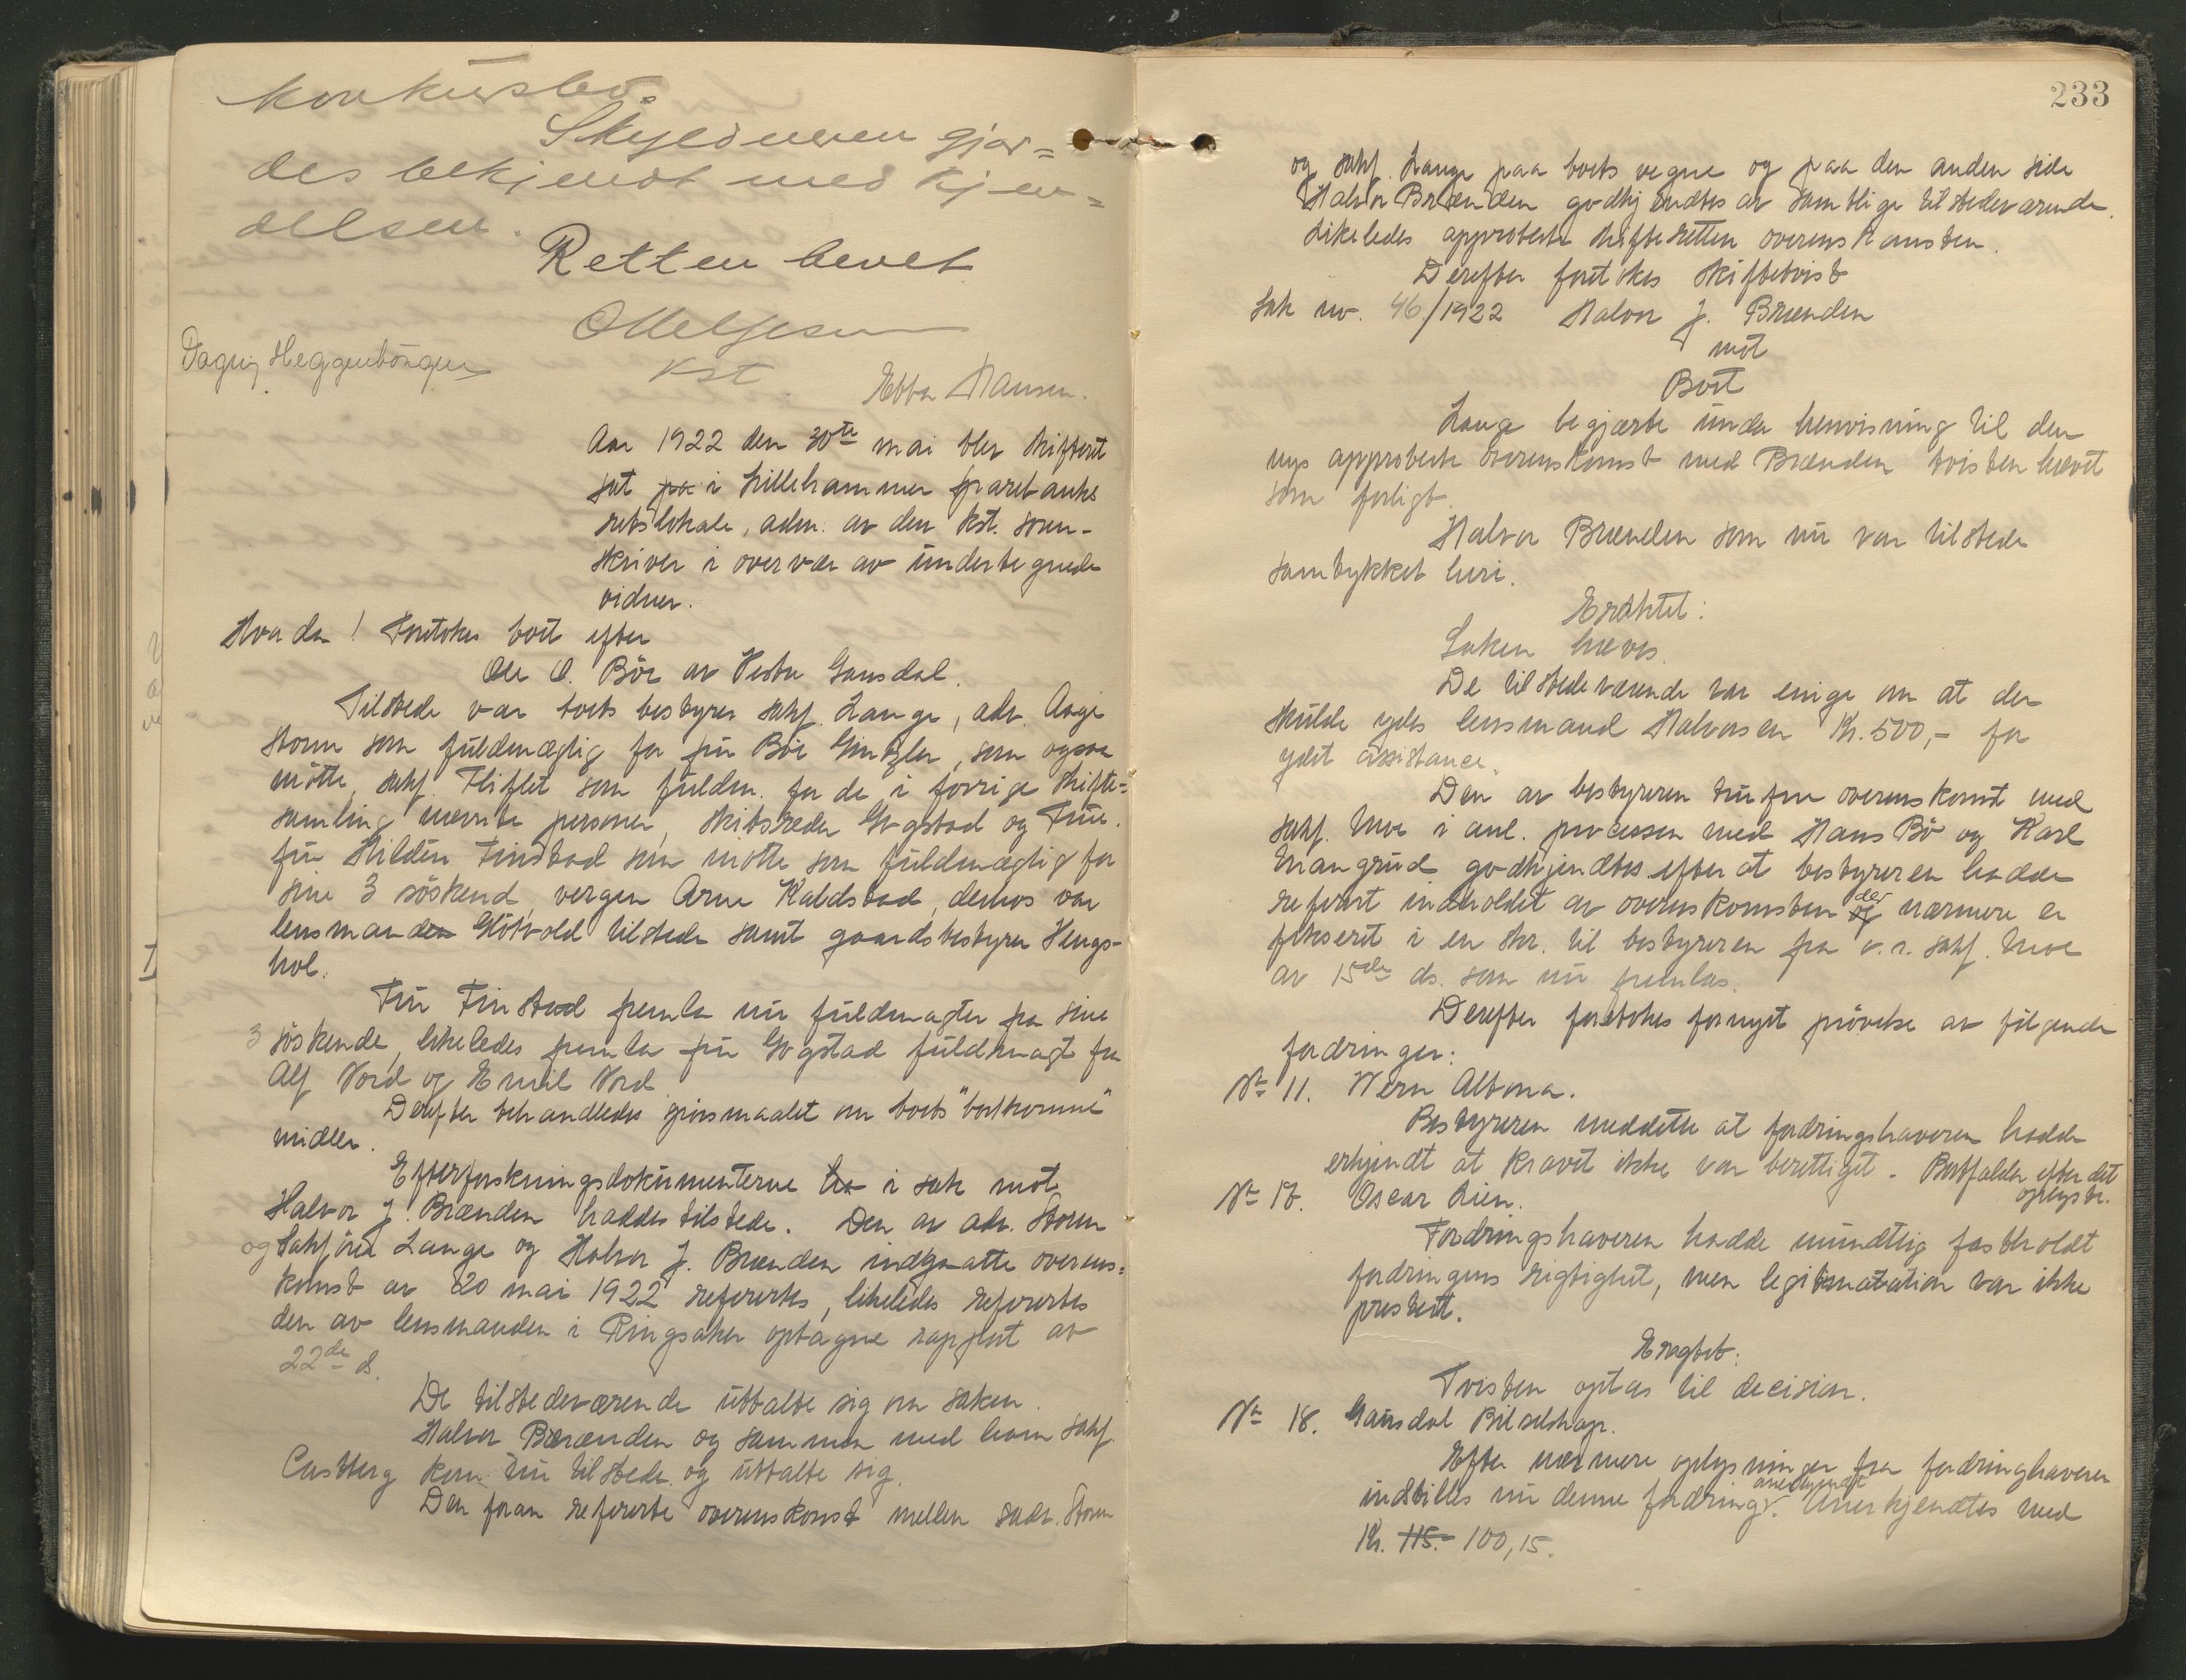 konkursbo.
Skyldneren gjør=
des bekjendt med kjen=
delsen.
Retten hevet
Kst.
Dagny Heggenhougen
Ebba Hansen.
Aar 1922 den 30te mai blev skifteret
sat pa i Lillehammer sparebanks
retslokale, adm. av den kst. soren-
skriver i overvær av undertegnede
vidner.
Hvorda! Foretokes boet efter
Ole O. Böe av Vestre Gausdal.
Tilstede var boets bestyrer sakf. Lange, adv. Aage
Storm som fuldmægtig for fru Böe, som ogsaa
mötte, sakf. Fliflet som fuldm. for de i forrige skifte=
samling nævnte personer, skibsreder Gogstad og Frue.
fru Hildur Finstad som mötte som fuldmægtig for
sine 3 söskend, vergen Arne Kaldstad, derhos var
lensmanden tilstede samt gaardsbestyrer Hengs-
hol.
Fru Finstad fremla nu fuldmagter fra sine
3 söskende, likeledes fremla fru Gogstad fuldmagt fra
Alf Nord og Emil Nord
Derefter behandledes spörsmaalet om boets "bortkomne"
midler.
Efterforskningsdokumenterne i sak mot
Halvor J. Brænden haddes tilstede. Den av adv. Storm
og Sakförer Lange og Halvor J. Brænden indgaatte overens=
komst av 20 mai 1922 refereртes, likeledes refereртes
den av lensmanden i Ringsaker optagne rapport av
22de ds.
De tilstedeværende uttalte sig om saken.
Halvor Brænden og sammen med ham sakf.
Castberg kom nu tilstede og uttalte sig.
Den foran refererte overenskomst mellem sakf. Storm
233
og sakf. Lange paa boets vegne og paa den anden side
Halvor Brænden godkjendtes av samtlige tilstedeværende.
Likeledes approberte skifteretten overenskomsten.
Derefter foretokes skiftetvist
Sak nr. 46/1922 Halvor J. Brænden
mot
Boet
Lange begjærte under henvisning til den
nys approberte overenskomst med Brænden tvisten hævet
som forligt.
Halvor Brænden som nu var tilstede
samtykket heri.
Eragtet:
Saken hæves.
De tilstedeværende var enige om at der
skulde ydes lensmand Halvorsen Kr. 500,- for
ydet assistance.
Den av bestyreren trufne overenskomst med
sakf. Moe i anl. processen med Hans Bö og Karl
godkjendtes efter at bestyreren hadde
referert indholdet av overenskomsten og der nærmere er
fikseret i en skr. til bestyreren fra o.r. sakf. Moe
av 15de ds. som nu fremlas.
Derefter foretokes fornyet prövelse av fölgende
fordringer:
No 11. Wern Altona.
Bestyreren meddelte at fordringshaveren hadde
erkjendt at kravet ikke var berettiget. Bortfalder efter det
oplyste.
No 17. Oscar Lien.
Fordringshaveren hadde mundtlig fastholdt
fordringens rigtighet, men legitimatation var ikke
prestert.
Eragtet:
Tvisten optas til decision.
No 18. Gausdal Bilselskap.
Efter nærmere oplysninger fra fordringhaveren
indstilles nu denne fordring anerkjendt. Anerkjendtes med
Kr. 115.- 100,15.